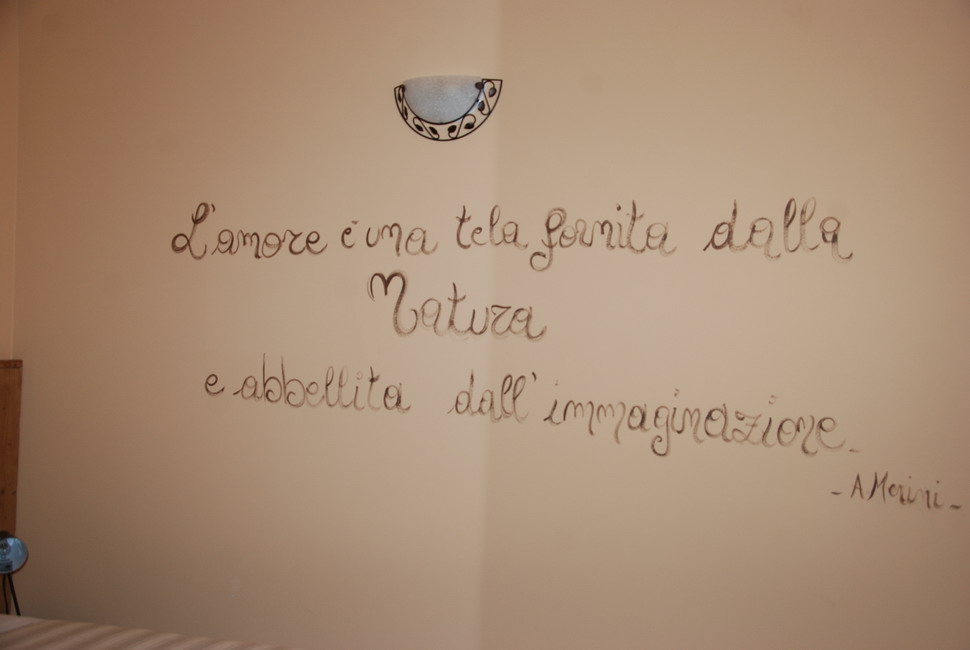 L'amore è una tela fornita dalla
Natura
e abbellita dall'immaginazione.
- A Merini -